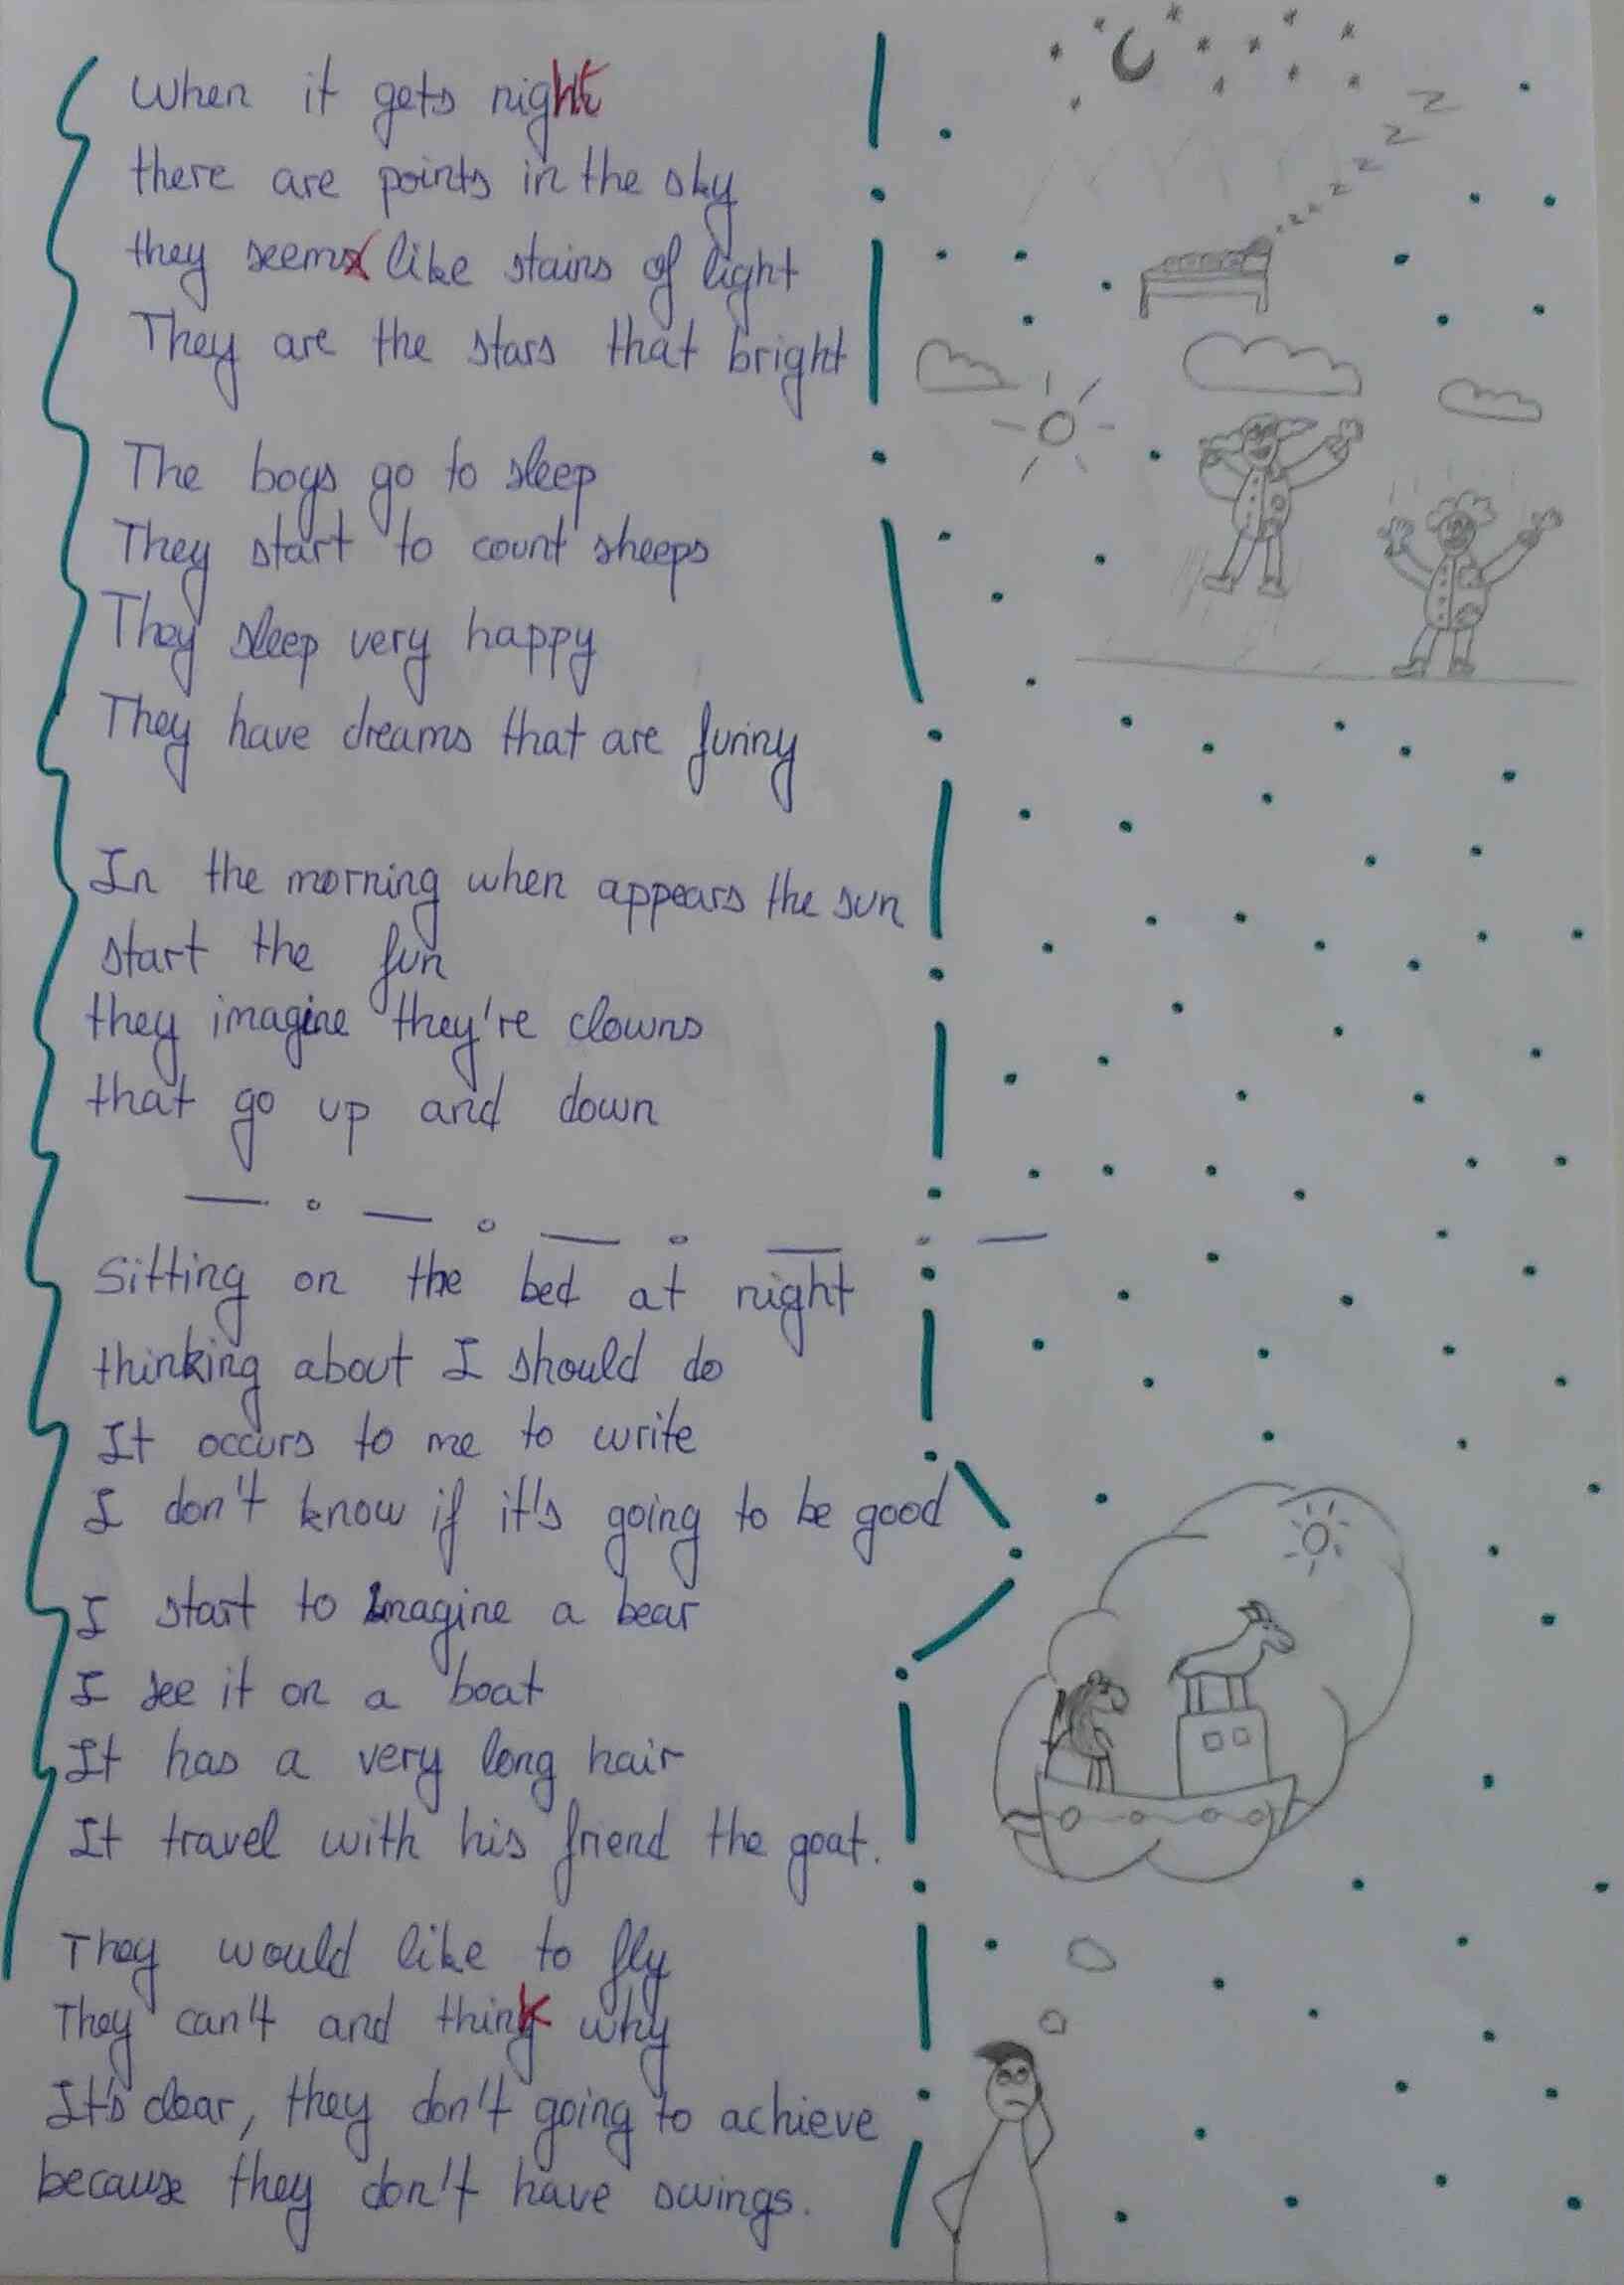 When it gets night
there are points in the sky
they seems like stains of light
They are the stars that bright
The boys go to sleep
They start to count sheeps
They sleep very happy
They have dreams that are funny
In the morning when appears the sun
start the fun
they imagine they're clowns
that go up and down
Sitting on the bed at night
thinking about I should do
It occurs to me to write
I don't know if it's going to be good
I start to imagine a bear
I see it on a boat
It has a very long hair
It travel with his friend the goat.
They would like to fly
They can't and think why
It's clear, they don't going to achieve
because they don't have swings.
z z z z z z z z